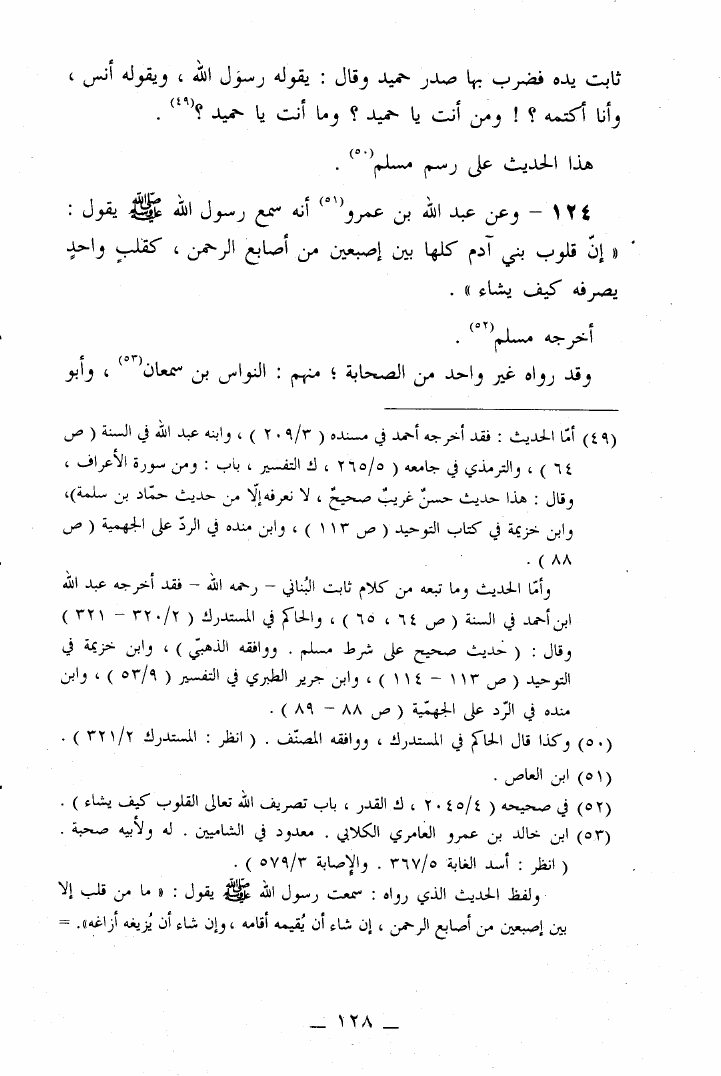 ثابت يده فضرب بها صدر حميد وقال : يقوله رسول الله ، ويقوله أنس ،
وأنا أكتمه ؟ ! ومن أنت يا حميد ؟ وما أنت يا حميد ؟(٤٩) .
هذا الحديث على رسم مسلم(٥٠) .
١٢٤ – وعن عبد الله بن عمرو(٥١) أنه سمع رسول الله ﷺ يقول :
« إنّ قلوب بني آدم كلها بين إصبعين من أصابع الرحمن ، كقلبٍ واحدٍ
يصرفه كيف يشاء » .
أخرجه مسلم(٥٢) .
وقد رواه غير واحد من الصحابة ؛ منهم : النواس بن سمعان(٥٣) ، وأبو
(٤٩) أمّا الحديث : فقد أخرجه أحمد في مسنده ( ٢٠٩/٣ ) ، وابنه عبد الله في السنة ( ص
٦٤ ) ، والترمذي في جامعه ( ٢٦٥/٥ ، ك التفسير ، باب : ومن سورة الأعراف ،
وقال : هذا حديث حسنٌ غريبٌ صحيحٌ ، لا نعرفه إلّا من حديث حمّاد بن سلمة)،
وابن خزيمة في كتاب التوحيد ( ص ١١٣ ) ، وابن منده في الردّ على الجهمية ( ص
٨٨ ) .
وأمّا الحديث وما تبعه من كلام ثابت البُناني – رحمه الله – فقد أخرجه عبد الله
ابن أحمد في السنة ( ص ٦٤ ، ٦٥ ) ، والحاكم في المستدرك ( ٣٢٠/٢ – ٣٢١ )
وقال : ( حديث صحيح على شرط مسلم . ووافقه الذهبيّ ) ، وابن خزيمة في
التوحيد ( ص ١١٣ – ١١٤ ) ، وابن جرير الطبري في التفسير ( ٥٣/٩ ) ، وابن
منده في الرّد على الجهميّة ( ص ٨٨ – ٨٩ ) .
(٥٠) وكذا قال الحاكم في المستدرك ، ووافقه المصنّف . ( انظر : المستدرك ٣٢١/٢ ) .
(٥١) ابن العاص .
(٥٢) في صحيحه ( ٢٠٤٥/٤ ، ك القدر ، باب تصريف الله تعالى القلوب كيف يشاء ) .
(٥٣) ابن خالد بن عمرو العامري الكلابي . معدود في الشاميين . له ولأبيه صحبة .
( انظر : أسد الغابة ٣٦٧/٥ . والإصابة ٥٧٩/٣ ) .
ولفظ الحديث الذي رواه : سمعت رسول الله ﷺ يقول : « ما من قلب إلا
بين إصبعين من أصابع الرحمن ، إن شاء أن يُقيمه أقامه ، وإن شاء أن يُزيغه أزاغه». =
— ١٢٨ —